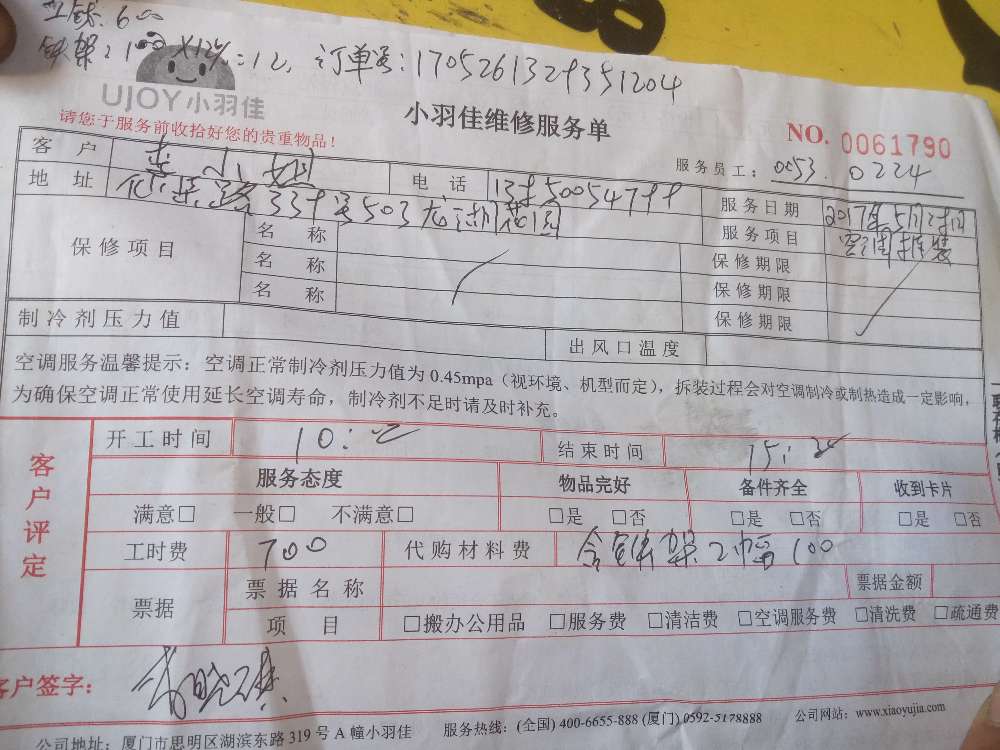 工钱:600
铁架:100×12%=12,订单号:1705261329351204
UJOY小羽佳
小羽佳维修服务单
NO. 0061790
请您于服务前收拾好您的贵重物品!
服务员工:0053. 0224
客 户 小 电 话 服务日期 2017年5月
地 址 503龙湖花园 服务项目 空调拆装
保修项目 名 称 保修期限
名 称 保修期限
名 称 保修期限
制冷剂压力值 出风口温度
空调服务温馨提示:空调正常制冷剂压力值为0.45mpa(视环境、机型而定),拆装过程会对空调制冷或制热造成一定影响,
为确保空调正常使用延长空调寿命,制冷剂不足时请及时补充。
客户评定
开工时间 10: 结束时间 15:
服务态度 物品完好 备件齐全 收到卡片
满意□ 一般□ 不满意□ □是 □否 □是 □否 □是 □否
工时费 700 代购材料费 含铁架2幅100
票据 票据名称 票据金额
项 目 □搬办公用品 □服务费 □清洁费 □空调服务费 □清洗费 □疏通费
客户签字:
公司地址:厦门市思明区湖滨东路319号A幢小羽佳 服务热线:(全国)400-6655-888 (厦门)0592-5178888 公司网站:www.xiaoyujia.com